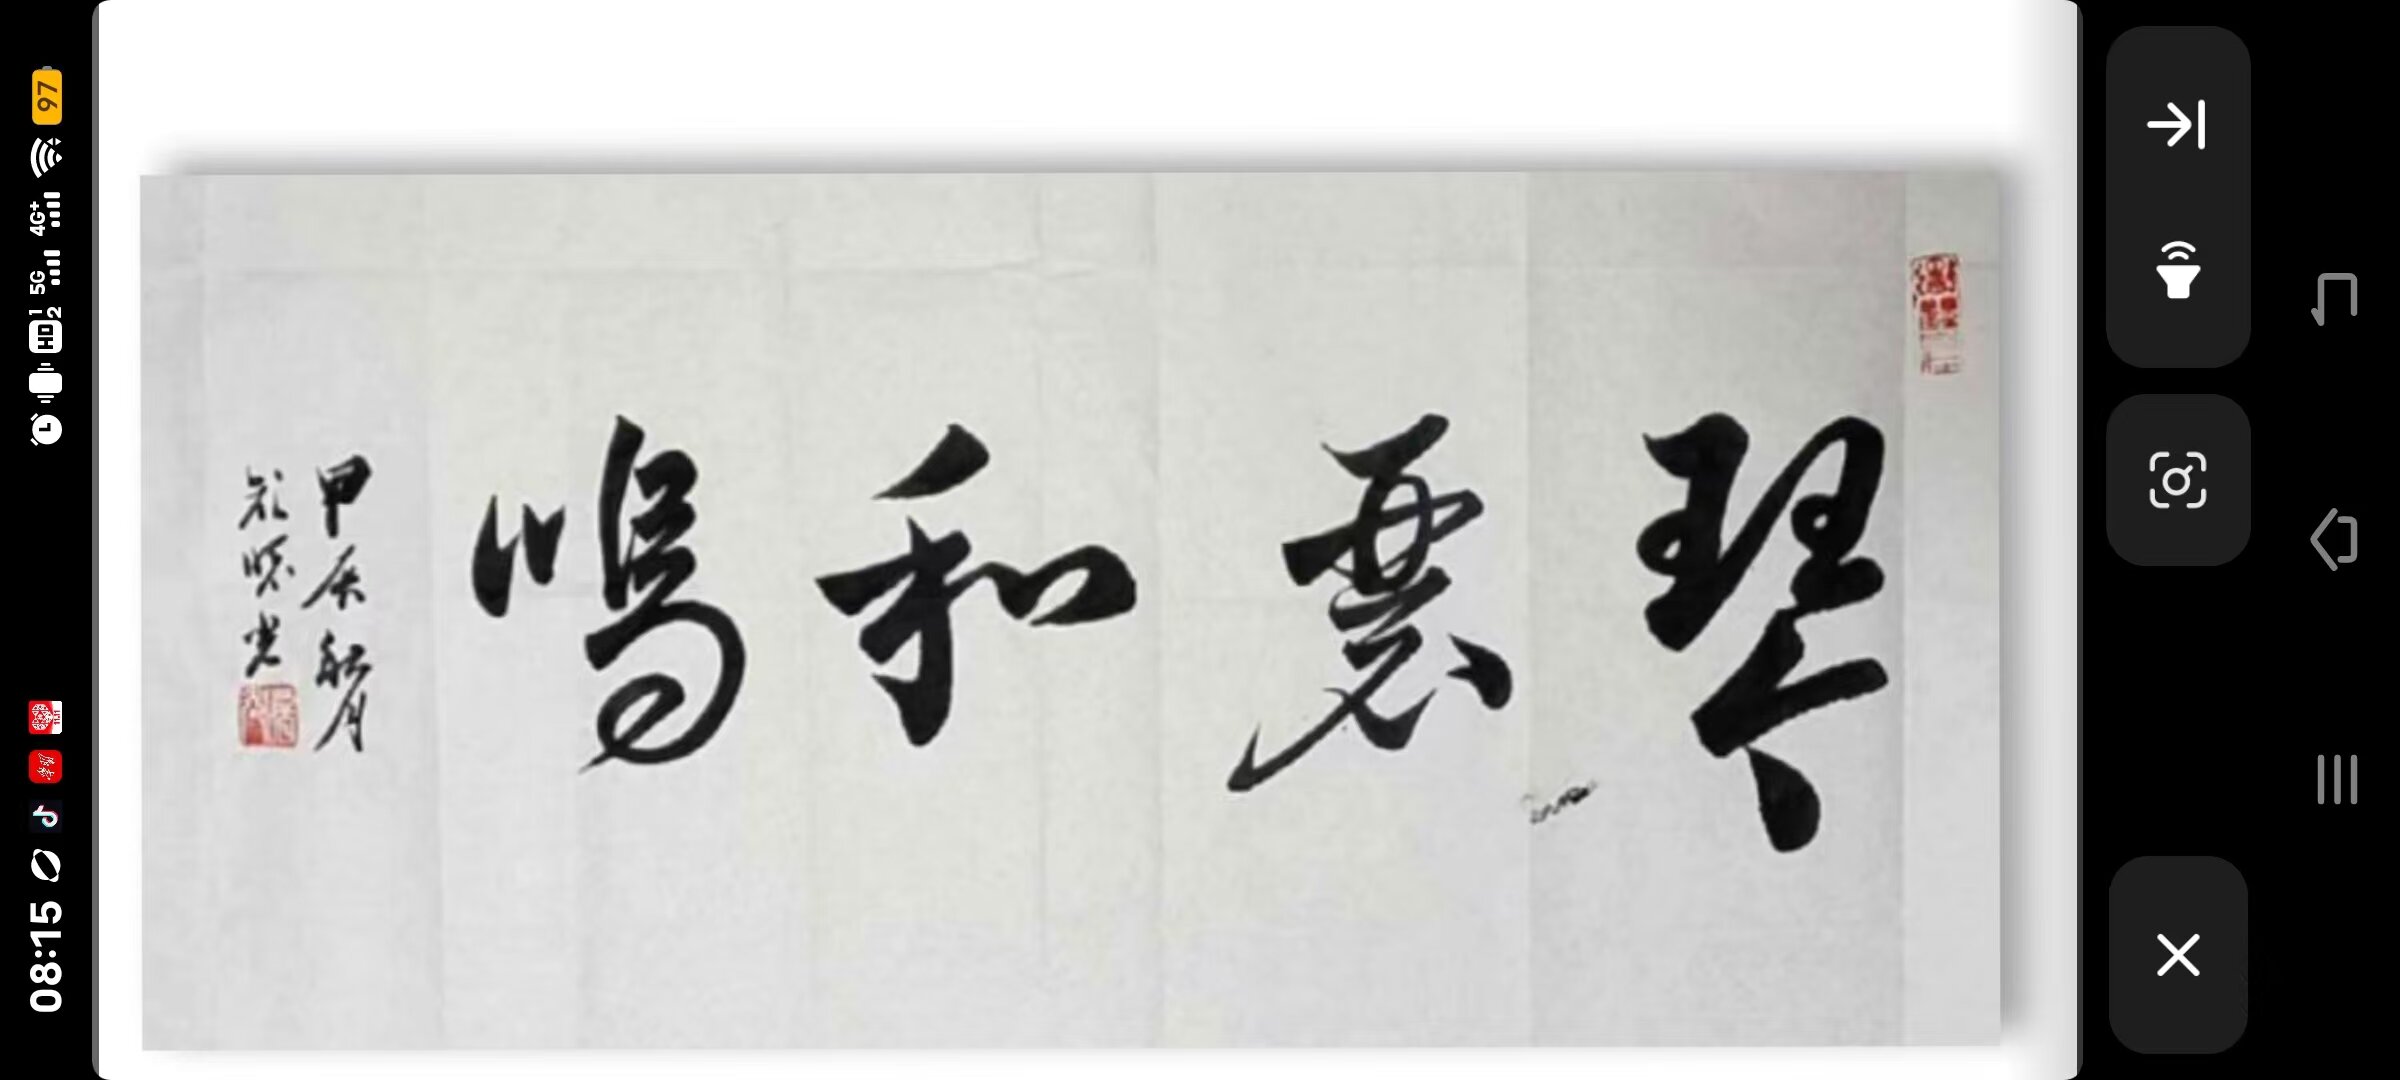 琴瑟和鳴
甲辰
月
光
08:15
HD 1 2
5G
4G+
97